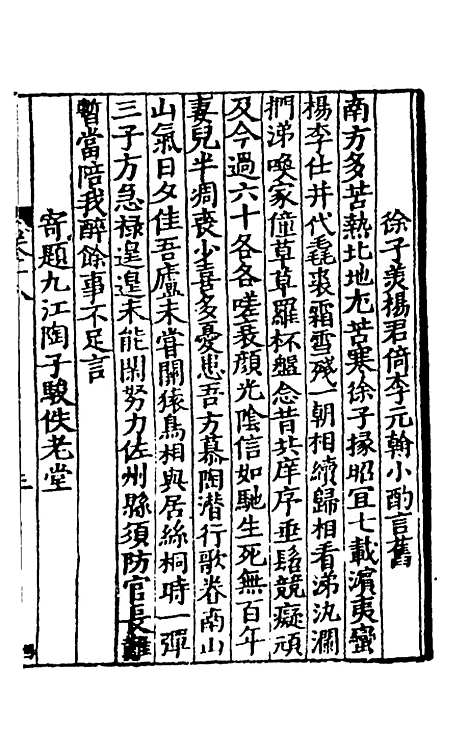 徐子羙楊君倚李元翰小酌言舊
南方多苦熱北地尤苦寒徐子掾昭宜七載濵夷蠻
楊李仕幷代毳裘霜雪殘一朝相續歸相看涕汍瀾
捫涕喚家僮草草羅杯盤念昔共庠序垂髫競癡頑
及今過六十各各嗟衰顔光陰信如馳生死無百年
妻兒半凋喪少喜多憂患吾方慕陶潜行歌巻南山
山氣日夕佳吾廬未嘗關猿鳥相與居絲桐時一彈
三子方急禄遑遑未能閑努力佐州縣須防官長難
暫當陪我醉餘事不足言
寄題九江陶子駿佚老堂
三